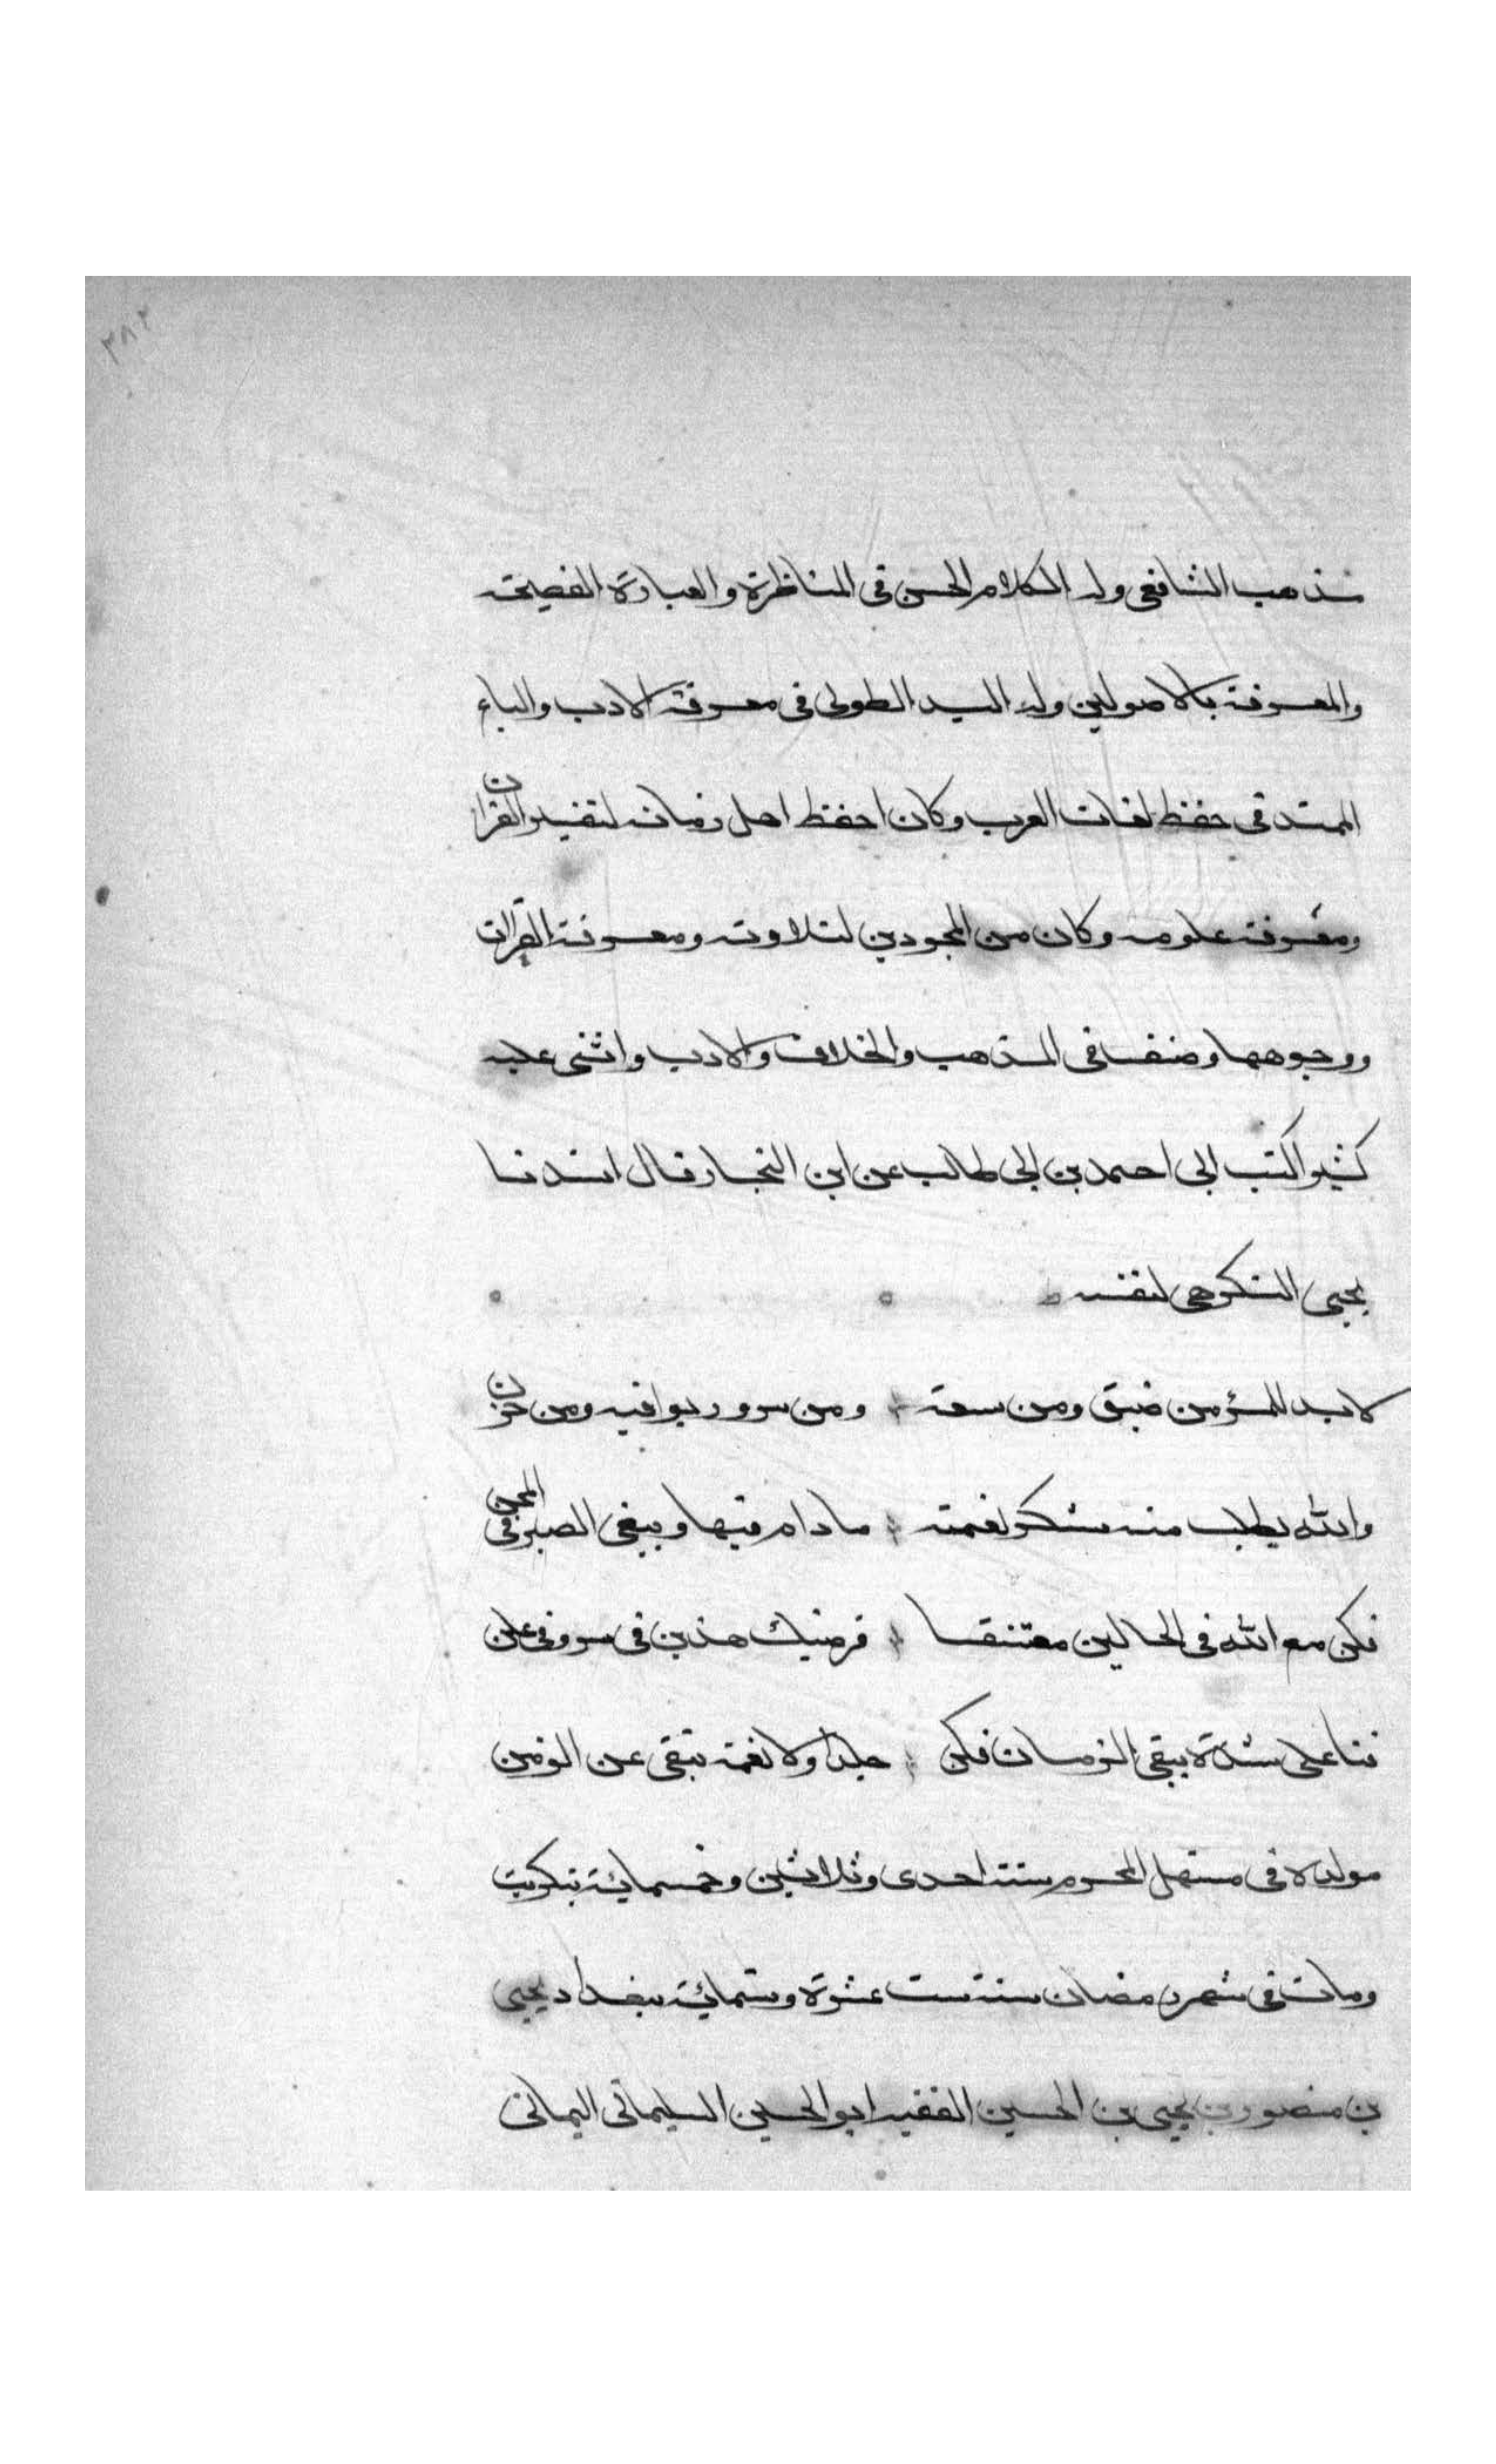 ٣٨٢
مذهب الشافعى وله الكلام الحسن فى المناظرة والعبارة الفصيحة
والمعرفة بالاصولين وله اليد الطولى فى معرفة الادب والباع
الممتد فى حفظ لغات العرب وكان احفظ اهل زمانه لتفسير القران
ومعرفة علومه وكان من المجودين لتلاوته ومعرفة القراات
ووجوهها وصنف فى المذهب والخلاف والادب واثنى عليه
كثيرا كتب الى احمد بن ابى طالب عن ابن النجار قال انشدنا
يحيى التكريتى لنفسه
لا بد للمرء من ضيق ومن سعة ومن سرور يوافيه ومن حزن
والله يطلب منه شكر نعمته ما دام فيها ويبغى الصبر فى المحن
فكن مع الله فى الحالين معتنقا فرضيك هذين فى سر وفى علن
فما على شدة يبقى الزمان فكن جلدا ولا نعمة تبقى على الزمن
مولده فى مستهل المحرم سنة احدى وثلاثين وخمسمائة بتكريت
ومات فى شهر رمضان سنة ست عشرة وستمائة ببغداد يحيى
بن منصور بن يحيى بن الحسين الفقيه ابو الحسين السليمانى اليمانى